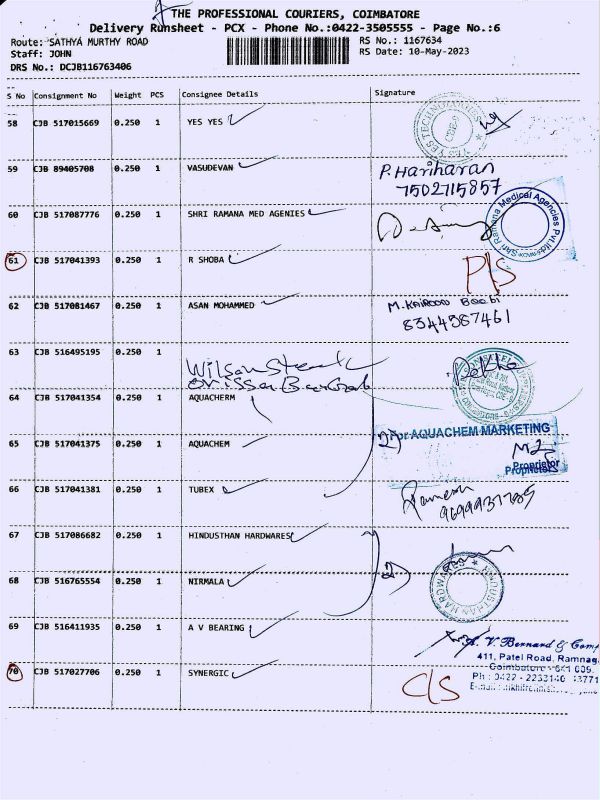 THE PROFESSIONAL COURIERS, COIMBATORE
Delivery Runsheet - PCX - Phone No.:0422-3505555 - Page No.:6
Route: SATHYA MURTHY ROAD RS No.: 1167634
Staff: JOHN RS Date: 10-May-2023
DRS No.: DCJB116763406
S No Consignment No Weight PCS Consignee Details Signature
58 CJB 517015669 0.250 1 YES YES
59 CJB 89405708 0.250 1 VASUDEVAN P. Hariharan
7502715857
60 CJB 517087776 0.250 1 SHRI RAMANA MED AGENIES
Sri Ramana Medical Agencies Pvt Ltd
61 CJB 517041393 0.250 1 R SHOBA P/S
62 CJB 517081467 0.250 1 ASAN MOHAMMED M. KAIROON Beebi
8344387461
63 CJB 516495195 0.250 1
64 CJB 517041354 0.250 1 AQUACHERM
65 CJB 517041375 0.250 1 AQUACHEM For AQUACHEM MARKETING
Proprietor
66 CJB 517041381 0.250 1 TUBEX Ramesh
67 CJB 517086682 0.250 1 HINDUSTHAN HARDWARES
HINDUSTHAN HARDWARES
68 CJB 516765554 0.250 1 NIRMALA
69 CJB 516411935 0.250 1 A V BEARING A. V. Bernard & Comp
411, Patel Road, Ramnag
Coimbatore - 641 009.
70 CJB 517027706 0.250 1 SYNERGIC C/S
Ph : 0422 - 2233140